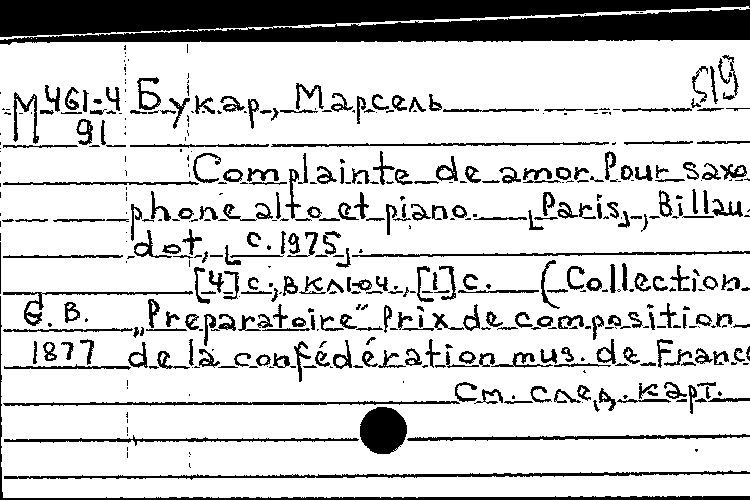 М 461-4 Букар, Марсель 519
91
Complainte de amor. Pour saxo
phone alto et piano. [Paris], Billau
dot, [с. 1975].
[4] с., включ., [1] с. (Collection
G. B. „Preparatoire“ Prix de composition
1877 de la confédération mus. de France
См. след. карт.